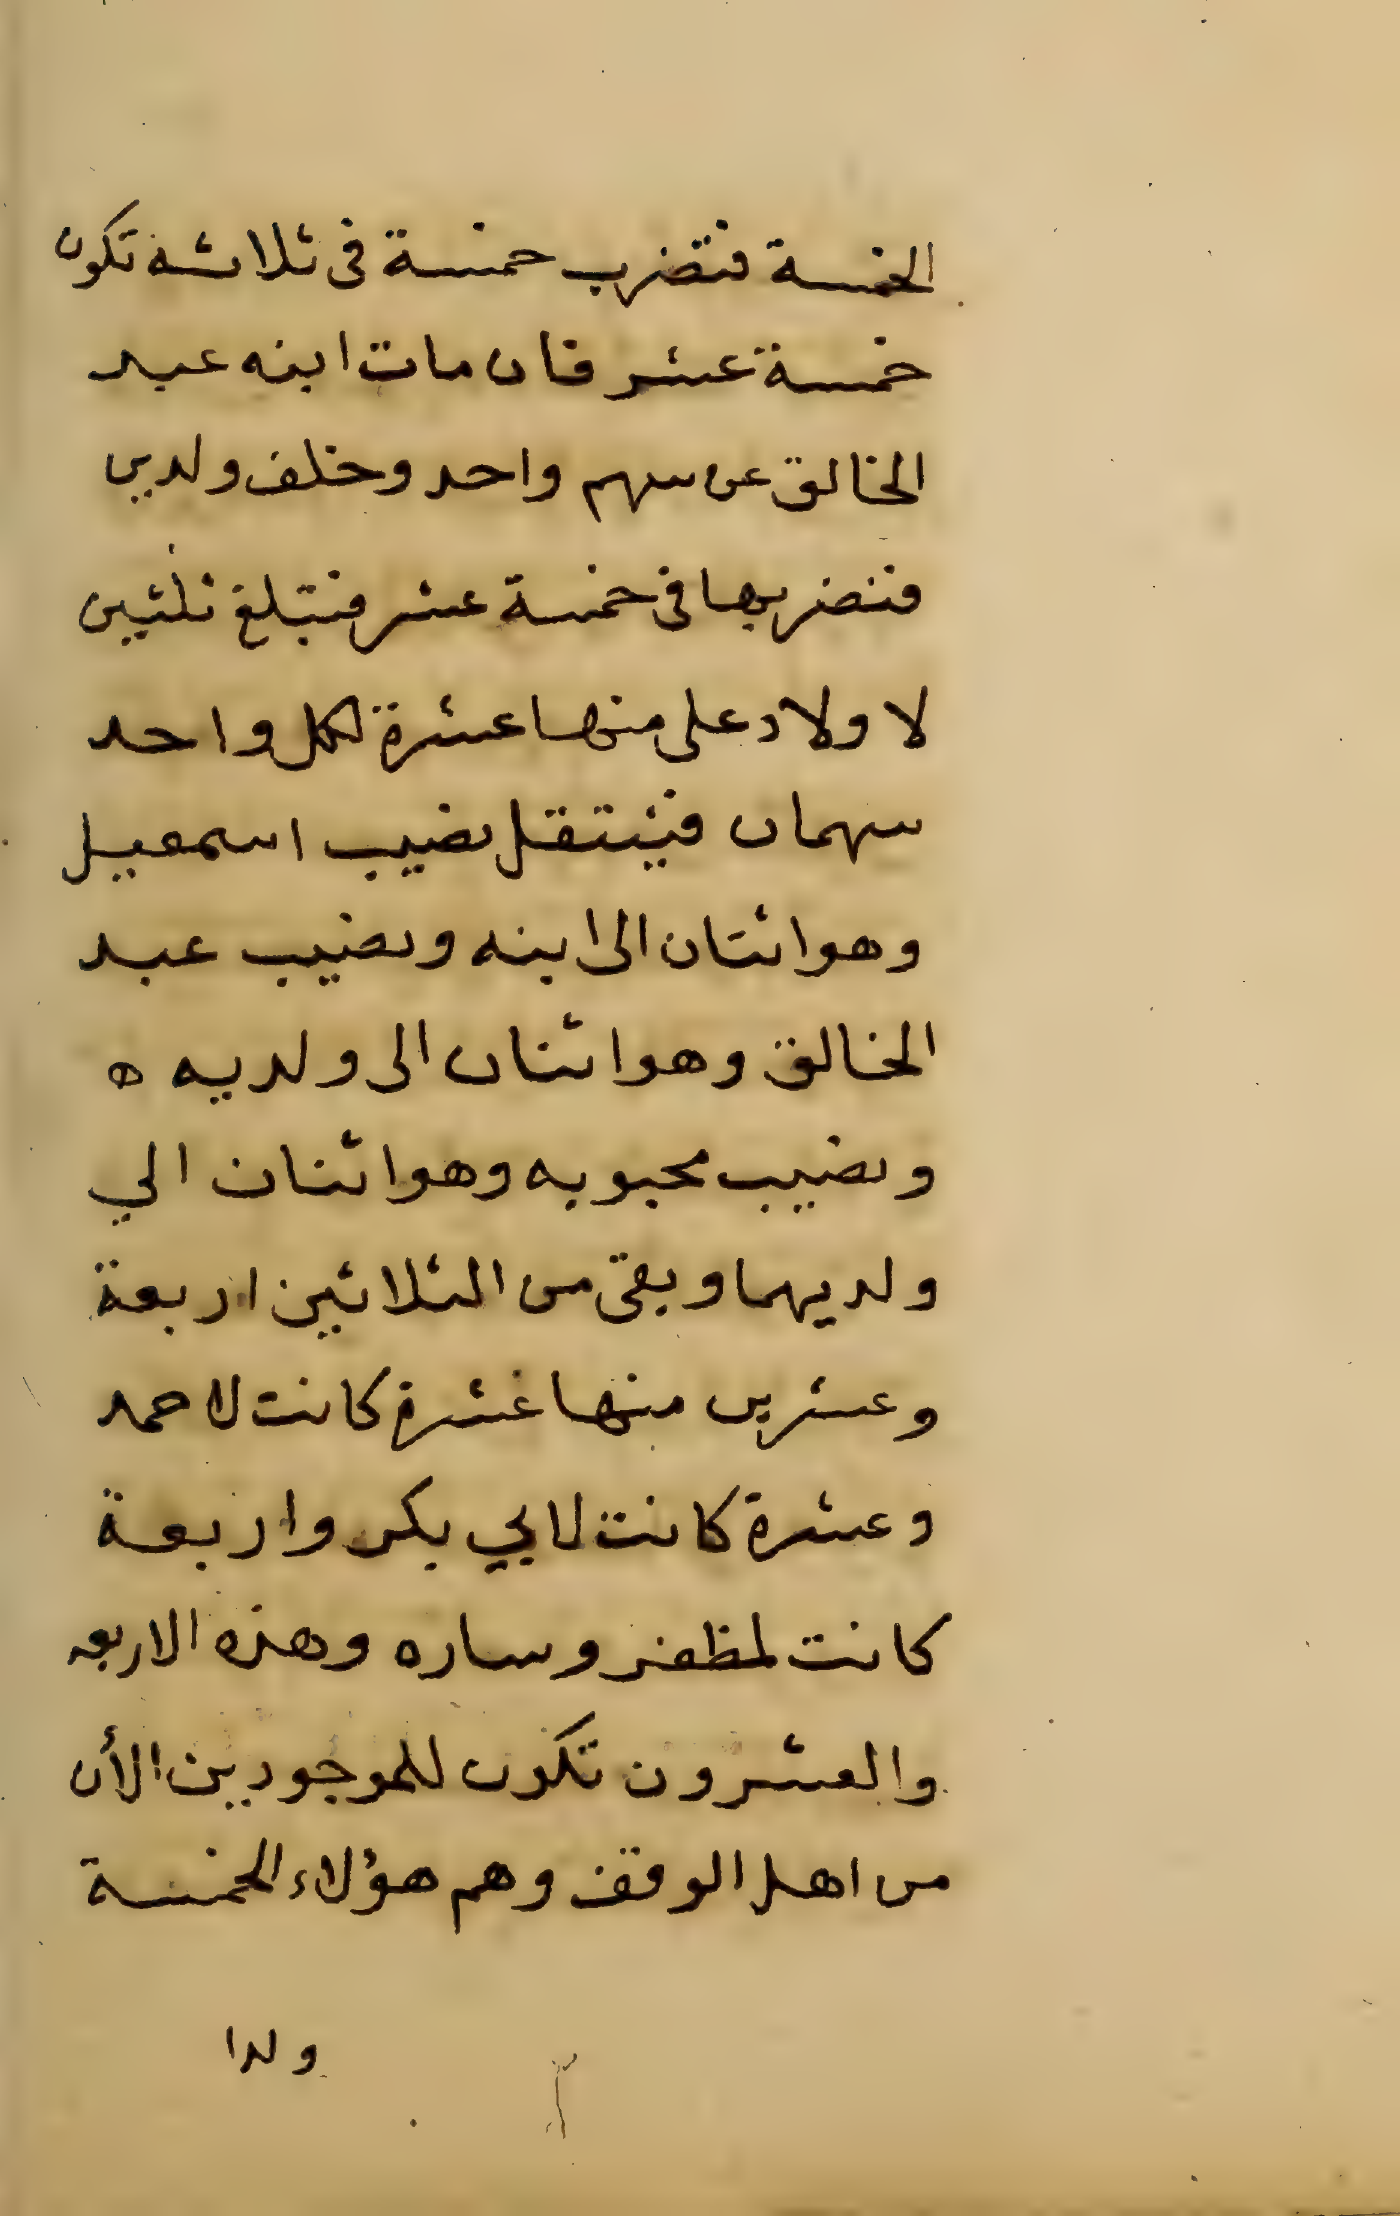 الخمسة فتضرب خمسة فى ثلاثة تكون
خمسة عشر فان مات ابنه عبد
الخالق عن سهم واحد وخلف ولدين
فنضربها فى خمسة عشر فتبلغ ثلثين
لاولاد على منها عشرة لكل واحد
سهمان فينتقل نصيب اسمعيل
وهو اثنان الى ابنه ونصيب عبد
الخالق وهو اثنان الى ولديه ه
ونصيب محبوبه وهو اثنان الي
ولديهما وبقى من الثلاثين اربعة
وعشرين منها عشرة كانت لاحمد
وعشرة كانت لابي بكر واربعة
كانت لمظفر وساره وهذه الاربعه
والعشرون تكون للموجودين الأن
من اهل الوقف وهم هؤلاء الخمسة
ولدا